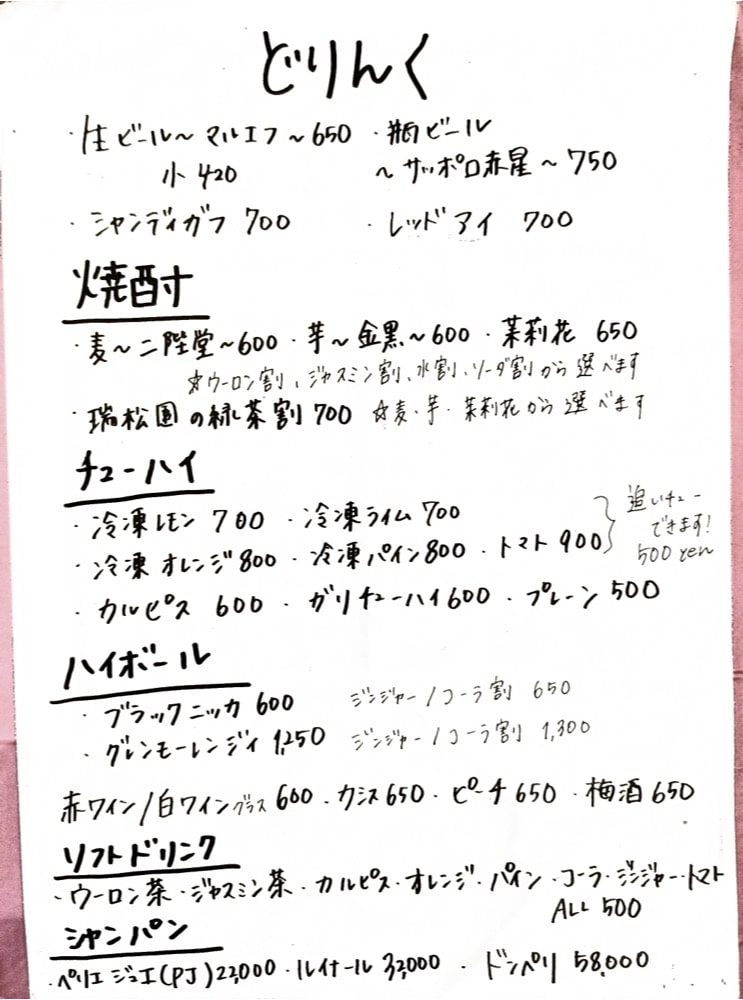 どりんく
・生ビール〜マルエフ〜650 ・瓶ビール
小 420 〜サッポロ赤星〜750
・シャンディガフ 700 ・レッドアイ 700
焼酎
・麦〜二階堂〜600・芋〜金黒〜600・茉莉花 650
☆ウーロン割、ジャスミン割、水割、ソーダ割から選べます
・瑞松園の緑茶割 700 ☆麦・芋・茉莉花から選べます
チューハイ
・冷凍レモン 700 ・冷凍ライム 700
・冷凍オレンジ 800 ・冷凍パイン 800 ・トマト 900
追いチュー
できます!
500 yen
・カルピス 600 ・ガリチューハイ 600 ・プレーン 500
ハイボール
・ブラックニッカ 600 ジンジャー/コーラ割 650
・グレンモーレンジィ 1,250 ジンジャー/コーラ割 1,300
赤ワイン/白ワイングラス 600・カシス 650・ピーチ 650・梅酒 650
ソフトドリンク
・ウーロン茶・ジャスミン茶・カルピス・オレンジ・パイン・コーラ・ジンジャー・トマト
ALL 500
シャンパン
・ペリエ ジュエ(PJ) 22,000・ルイナール 32,000 ・ドンペリ 58,000